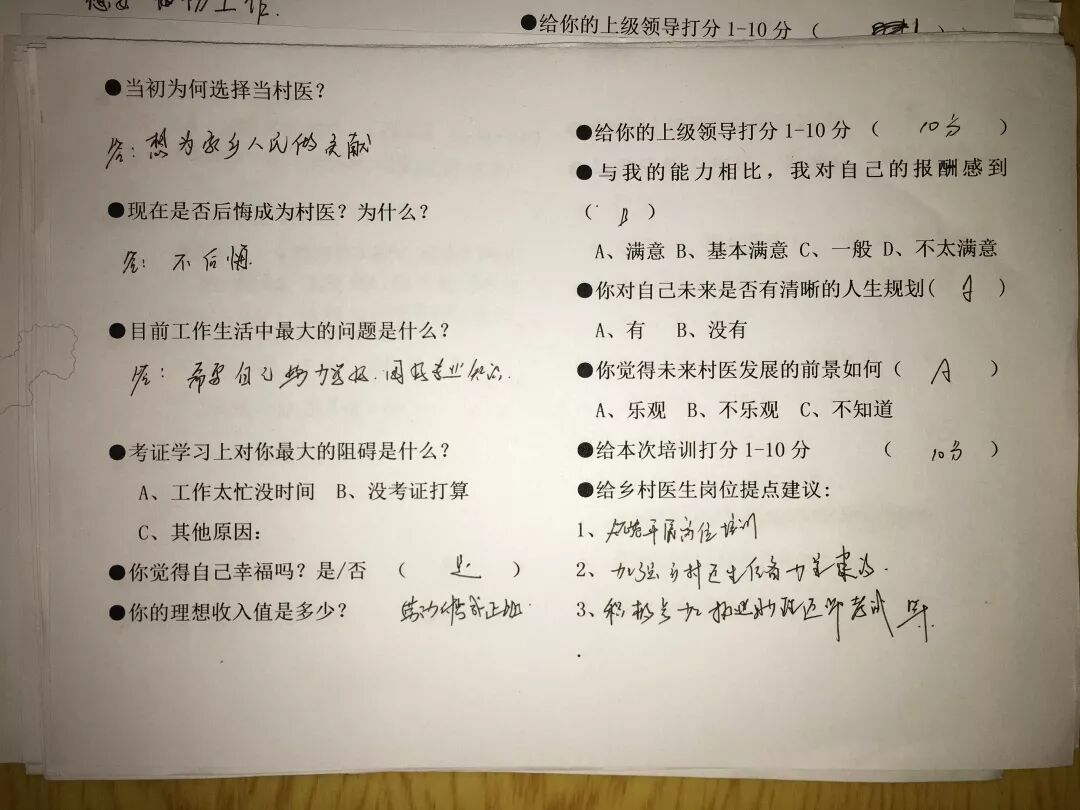 ●给你的上级领导打分1-10分（ ）
●当初为何选择当村医？
答：想为家乡人民做贡献
●现在是否后悔成为村医？为什么？
答：不后悔.
●目前工作生活中最大的问题是什么？
答：需要自己努力学 专业知识.
●考证学习上对你最大的阻碍是什么？
A、工作太忙没时间 B、没考证打算
C、其他原因：
●你觉得自己幸福吗？是/否 （ 是 ）
●你的理想收入值是多少？
●给你的上级领导打分1-10分（ 10分 ）
●与我的能力相比，我对自己的报酬感到
（ B ）
A、满意 B、基本满意 C、一般 D、不太满意
●你对自己未来是否有清晰的人生规划( A )
A、有 B、没有
●你觉得未来村医发展的前景如何（ A ）
A、乐观 B、不乐观 C、不知道
●给本次培训打分1-10分 （ 10分 ）
●给乡村医生岗位提点建议：
1、 开展岗位培训
2、加强乡村医生 力
3、积极 加 助理医师考试